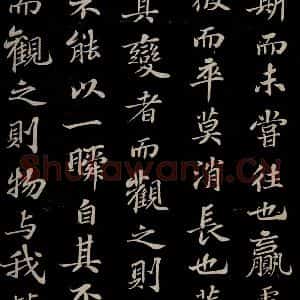 斯而未嘗往也贏
彼而卒莫消長也
其變者而觀之則
不能以一瞬自其
而觀之則物与我
Shufawang.CN